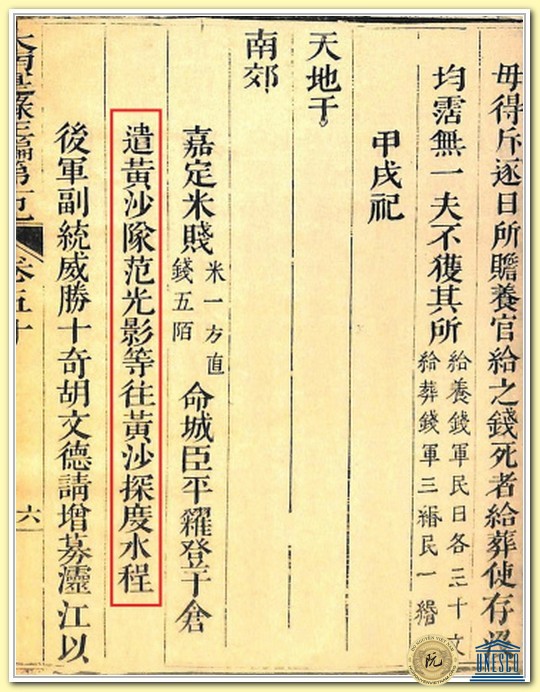 毋得斥逐日所贍養官給之錢死者給葬使存
均霑無一夫不獲其所
給養錢軍民日各三十文
給葬錢軍三緡民一緡
甲戌祀
天地于
南郊
嘉定米賤
米一方直
錢五陌
命城臣平糴登于倉
遣黃沙隊范光影等往黃沙探度水程
後軍副統威勝十奇胡文德請增募江以
大南寔錄正編第一紀
卷五十
六
阮
UNESCO